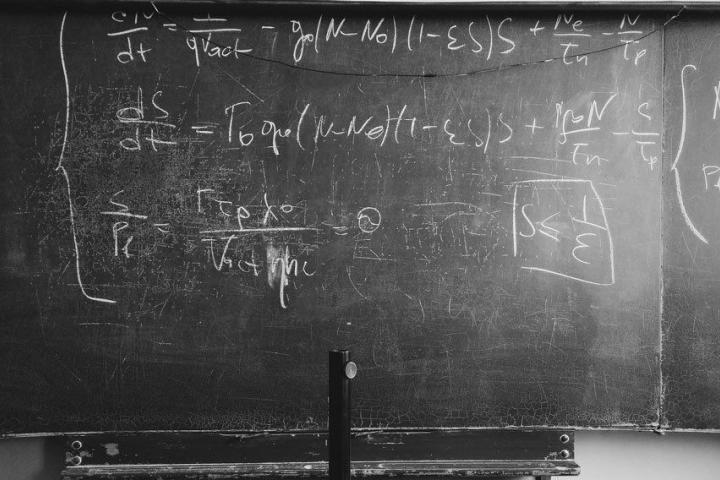 dN/dt = I/qVact - g₀(N-N₀)(1-εS)S + Ne/τn - N/τp
dS/dt = Γ₀g₀(N-N₀)(1-εS)S + N/τn - S/τp
S/Pf = Γτpλ₀/Vact ηhc = ϑ
S ≤ 1/ε